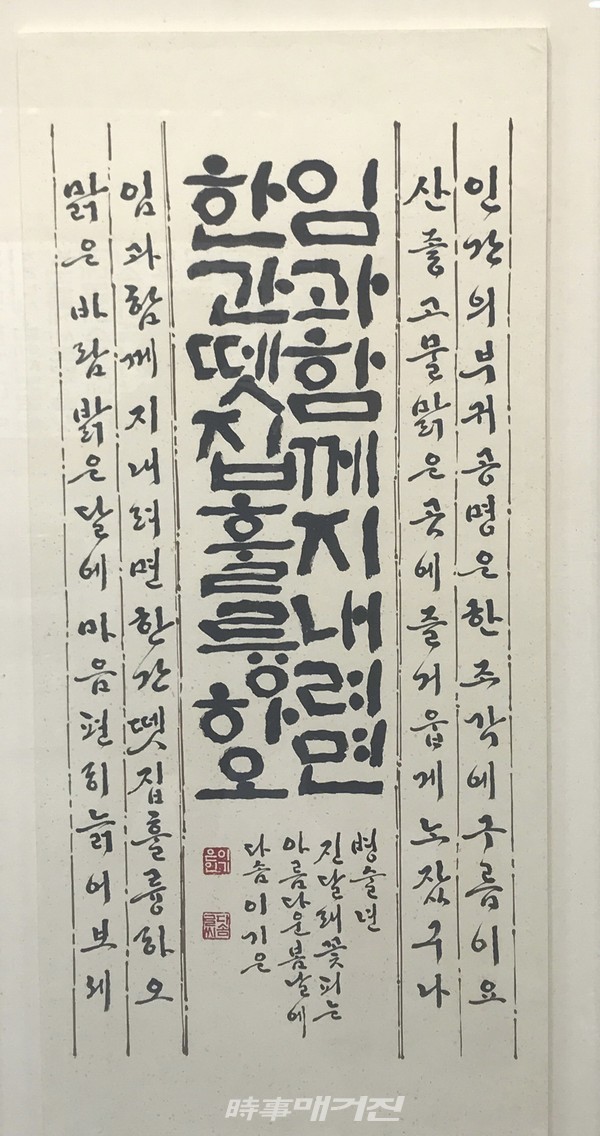 인간의부귀공명은한조각에구름이요
산좋고물맑은곳에즐거웁게노잤구나
임과함께지내려면
한간뗏집훌륭하오
임과함께지내려면한간뗏집훌륭하오
맑은바람밝은달에마음편히늙어보세
병술년
진달래꽃피는
아름다운봄날에
다솜이기은
이기은인
다솜글씨
時事매거진